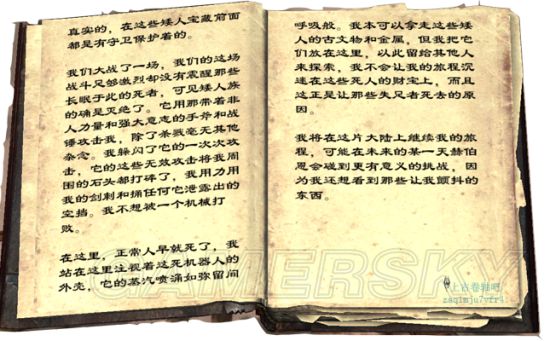 真实的，在这些矮人宝藏前面
都是有守卫保护着的。
我们大战了一场，我们的这场
战斗足够激烈却没有震醒那些
长眠于此的死者，可见矮人族
的确是灭绝了。它用那带着非
人力量和强大意志的手斧和战
锤攻击我，除了杀戮毫无其他
杂念。我躲闪了它的一次次攻
击，它的这些无效攻击将我周
围的石头都打碎了，我用力用
我的剑刺和捅任何它泄露出的
空挡。我不想被一个机械打
败。
在这里，正常人早就死了，我
站在这里注视着这死机器人的
外壳，它的蒸汽喷涌如弥留间
呼吸般。我本可以拿走这些矮
人的古文物和金属，但我把它
们放在这里，以此留给其他人
来探索，我不会让我的旅程沉
迷在这些死人的财宝上，而且
这正是让那些失兄者死去的原
因。
我将在这片大陆上继续我的旅
程，可能在未来的某一天赫伯
恩会碰到更有意义的挑战，因
为我还想看到那些让我颤抖的
东西。
GAMERSKY
上古卷轴吧
zaqimju7yfr4